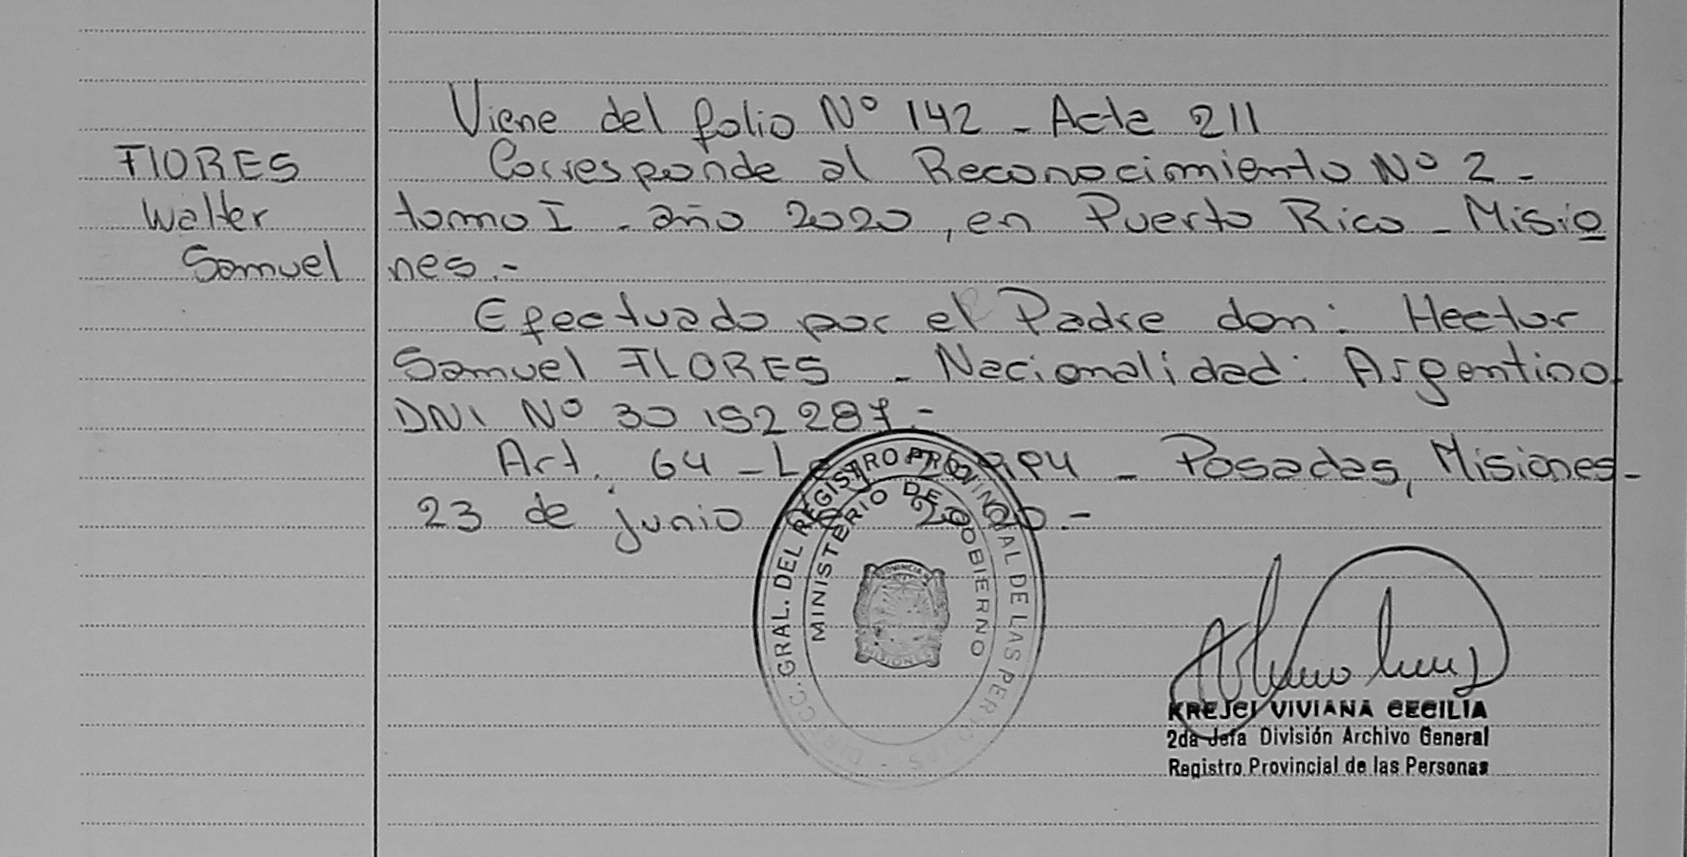 Viene del folio Nº 142 - Acta 211
FLORES
Walter
Samuel
Corresponde al Reconocimiento Nº 2 -
tomo I - año 2020, en Puerto Rico - Misio
nes.-
Efectuado por el Padre don: Hector
Samuel FLORES - Nacionalidad: Argentino
DNI Nº 30 152 287.-
Art. 64 - Ley - Posadas, Misiones -
23 de junio de 2020.-
DIRECC. GRAL. DEL REGISTRO PROVINCIAL DE LAS PERSONAS
MINISTERIO DE GOBIERNO
PROVINCIA
MISIONES
KREJCI VIVIANA CECILIA
2da Jefa División Archivo General
Registro Provincial de las Personas